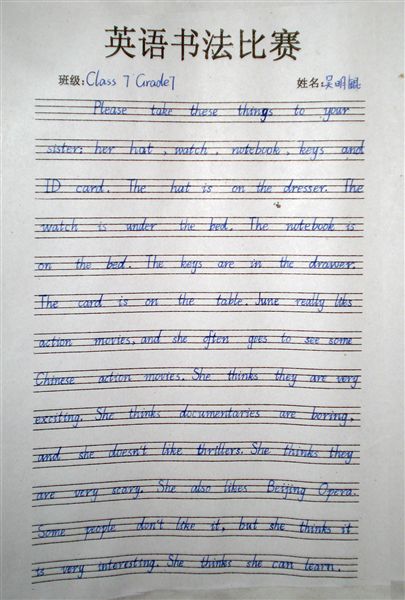 英语书法比赛
班级: Class 7 Grade7 姓名: 吴明
Please take these things to your
sister: her hat, watch, notebook, keys and
ID card. The hat is on the dresser. The
watch is under the bed. The notebook is
on the bed. The keys are in the drawer.
The card is on the table. June really likes
action movies, and she often goes to see some
Chinese action movies. She thinks they are very
exciting. She thinks documentaries are boring,
and she doesn't like thrillers. She thinks they
are very scary. She also likes Beijing Opera.
Some people don't like it, but she thinks it
is very interesting. She thinks she can learn.